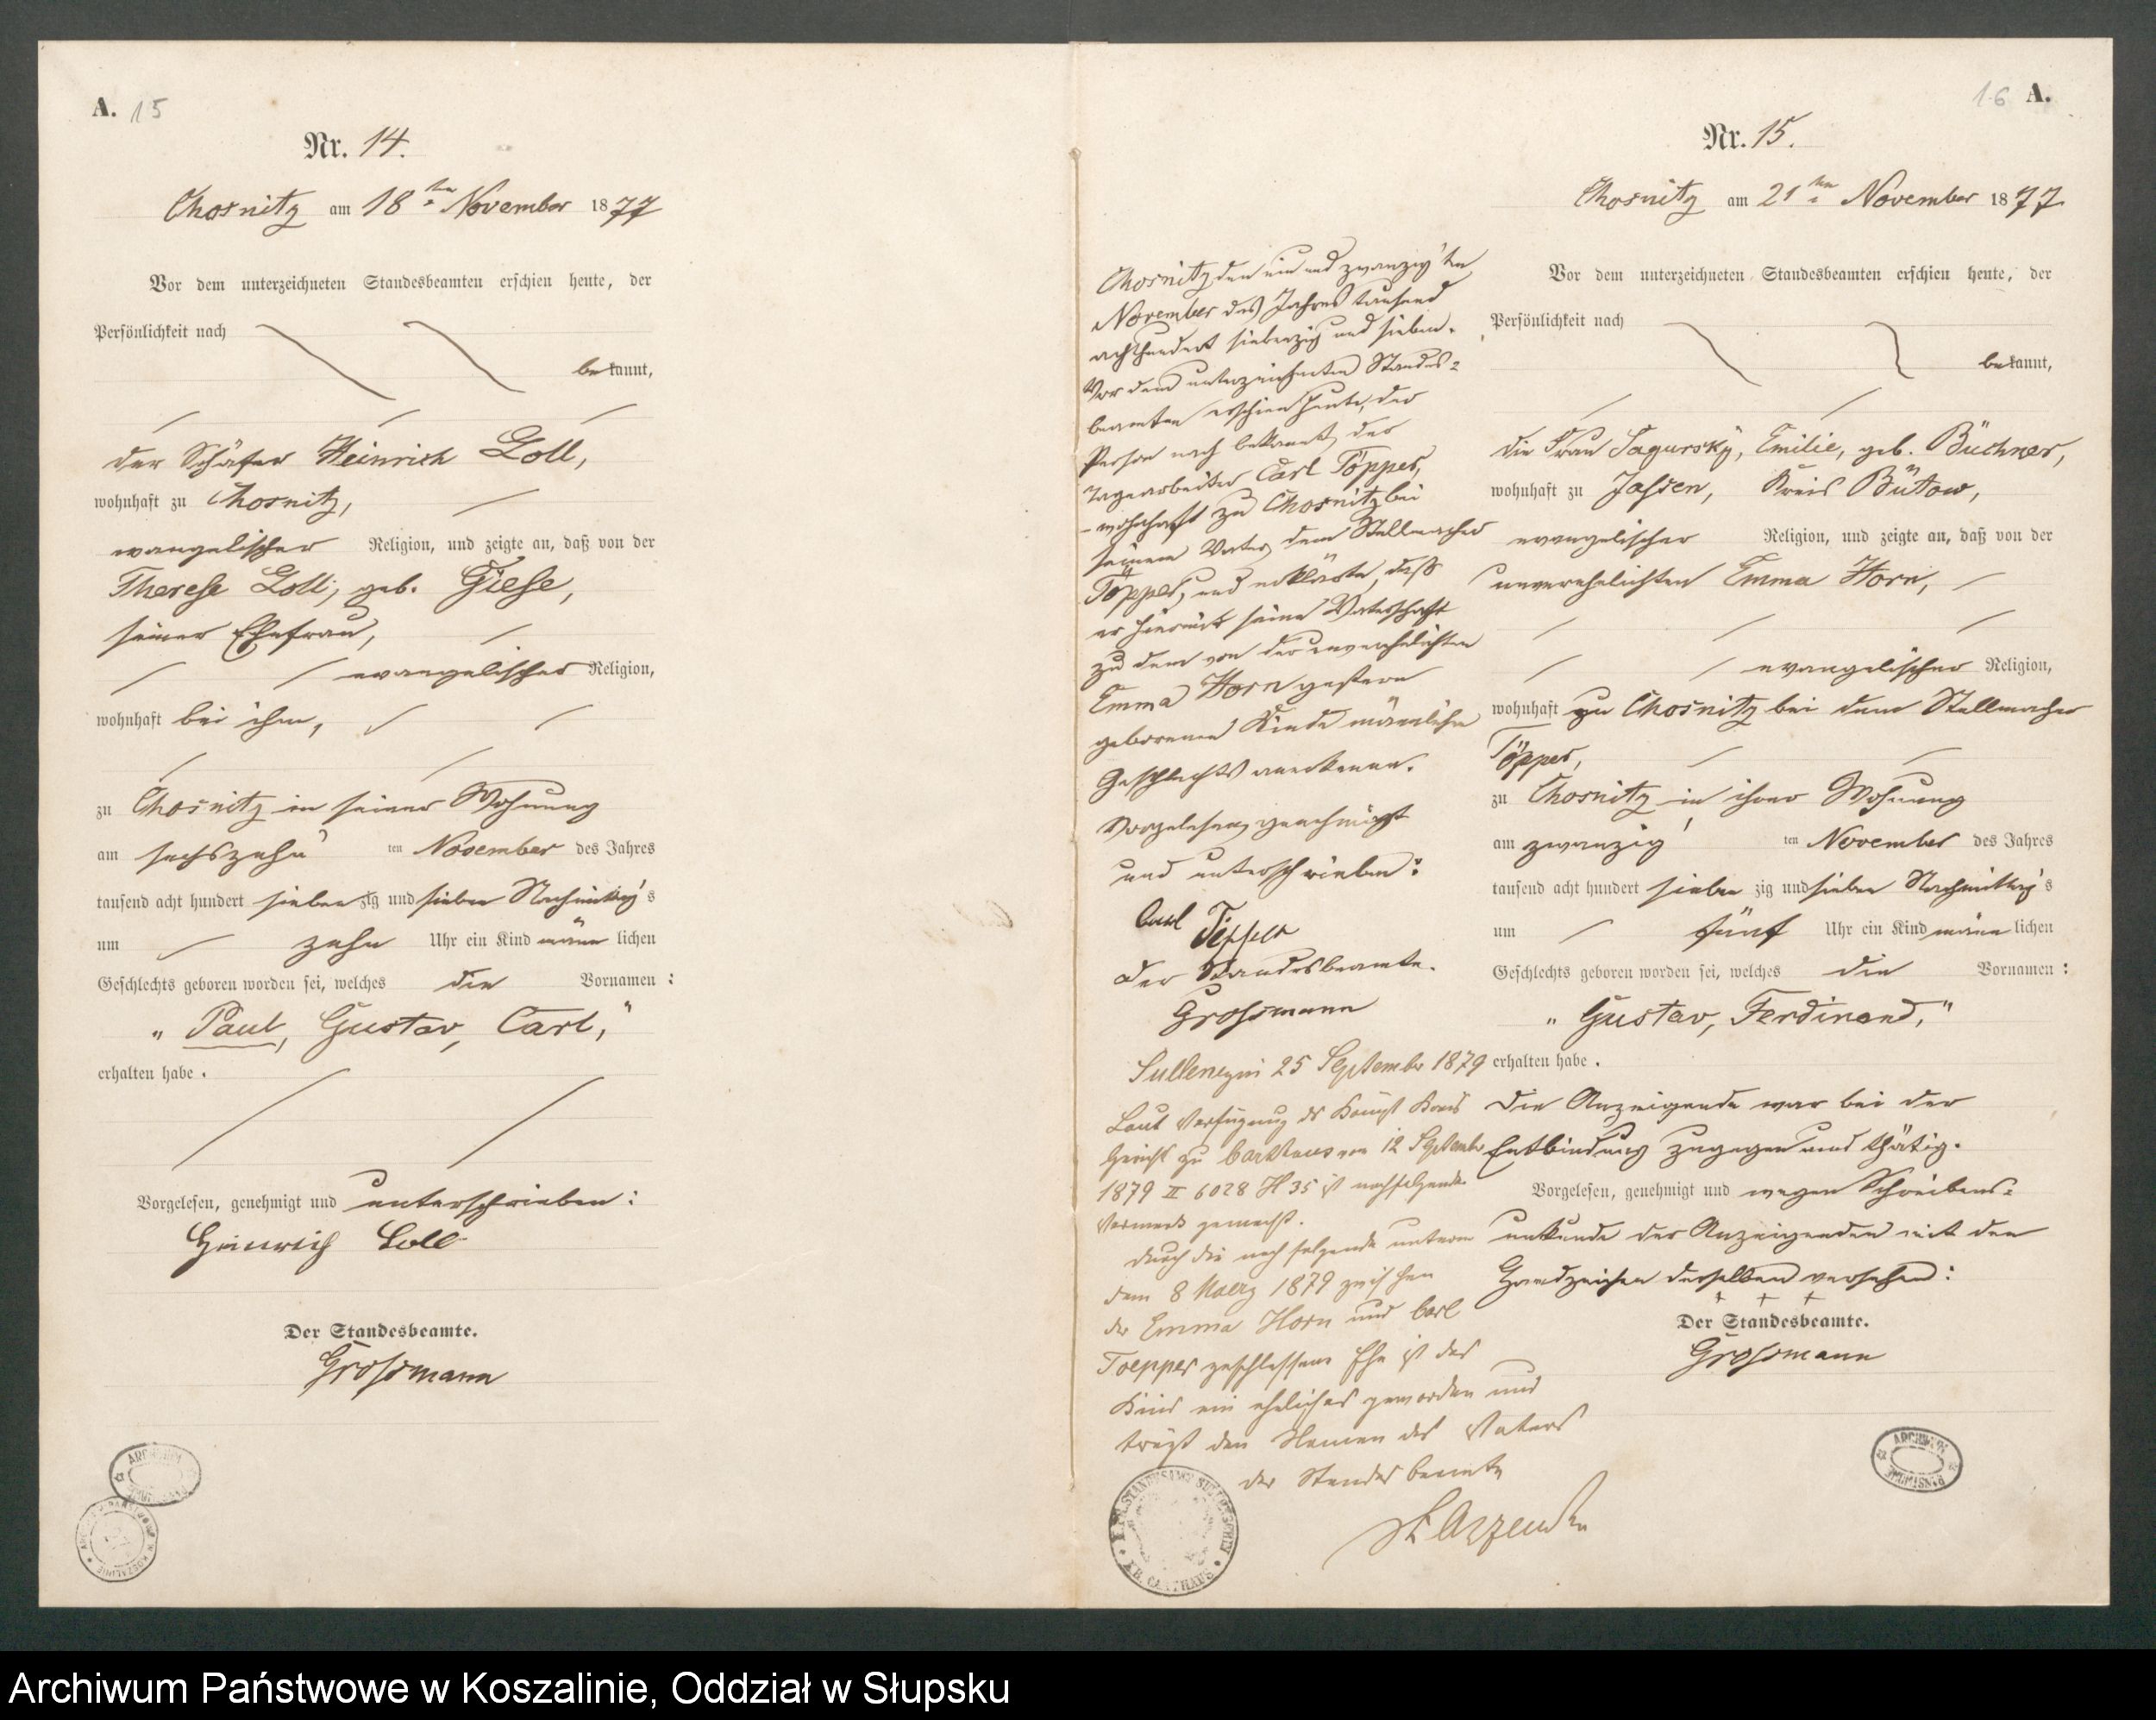 A. 15
Nr. 14.
Chosnitz am 18ten November 1877
Vor dem unterzeichneten Standesbeamten erschien heute, der
Persönlichkeit nach
bekannt,
der Schäfer Heinrich Loll,
wohnhaft zu Chosnitz,
evangelischer Religion, und zeigte an, daß von der
Therese Loll, geb. Giese,
seiner Ehefrau,
evangelischer Religion,
wohnhaft bei ihm,
zu Chosnitz in seiner Wohnung
am sechszehnten November des Jahres
tausend acht hundert siebenzig und sieben Nachmittags
um zehn Uhr ein Kind männlichen
Geschlechts geboren worden sei, welches die Vornamen:
„Paul, Gustav, Carl,“
erhalten habe.
Vorgelesen, genehmigt und unterschrieben:
Heinrich Loll
Der Standesbeamte.
Grossmann
16 A.
Nr. 15.
Chosnitz am 21ten November 1877
Vor dem unterzeichneten Standesbeamten erschien heute, der
Persönlichkeit nach
bekannt,
die Frau Sagursky, Emilie, geb. Büchner,
wohnhaft zu Jassen, Kreis Bütow,
evangelischer Religion, und zeigte an, daß von der
unverehelichten Emma Horn,
evangelischer Religion,
wohnhaft zu Chosnitz bei dem Stellmacher
Töpper,
zu Chosnitz in ihrer Wohnung
am zwanzigten November des Jahres
tausend acht hundert siebenzig und sieben Nachmittags
um fünf Uhr ein Kind männlichen
Geschlechts geboren worden sei, welches die Vornamen:
„Gustav, Ferdinand,“
erhalten habe.
Die Anzeigende war bei der
Entbindung zugegen und thätig.
Vorgelesen, genehmigt und wegen Schreibens-
unkunde der Anzeigenden mit den
Handzeichen derselben versehen:
+ + +
Der Standesbeamte.
Grossmann
Chosnitz, den ein und zwanzigten
November des Jahres tausend
achthundert siebenzig und sieben.
Vor dem unterzeichneten Standes-
beamten erschien heute, der
Person nach bekannt, der
Tagearbeiter Carl Töpper,
wohnhaft zu Chosnitz bei
seinem Vater, dem Stellmacher
Töpper, und erklärte, daß
er hiermit seine Vaterschaft
zu dem von der unverehelichten
Emma Horn gestern
geborenen Kinde männlichen
Geschlechts anerkenne.
Vorgelesen, genehmigt
und unterschrieben:
Carl Töpper
Der Standesbeamte.
Grossmann
Sullenczyn 25 September 1879
Laut Verfügung des Königl Kreis
Gericht zu Carthaus vom 12 September
1879 II 6028 H 35 ist nachfolgender
Vermerk gemacht.
Durch die nachfolgende unterm
dem 8 Maerz 1879 zwischen
der Emma Horn und Carl
Toepper geschlossene Ehe ist das
Kind ein eheliches geworden und
trägt den Namen des Vaters
Der Standesbeamte
ARCHIWUM PAŃSTWOWE
Archiwum Państwowe w Koszalinie, Oddział w Słupsku